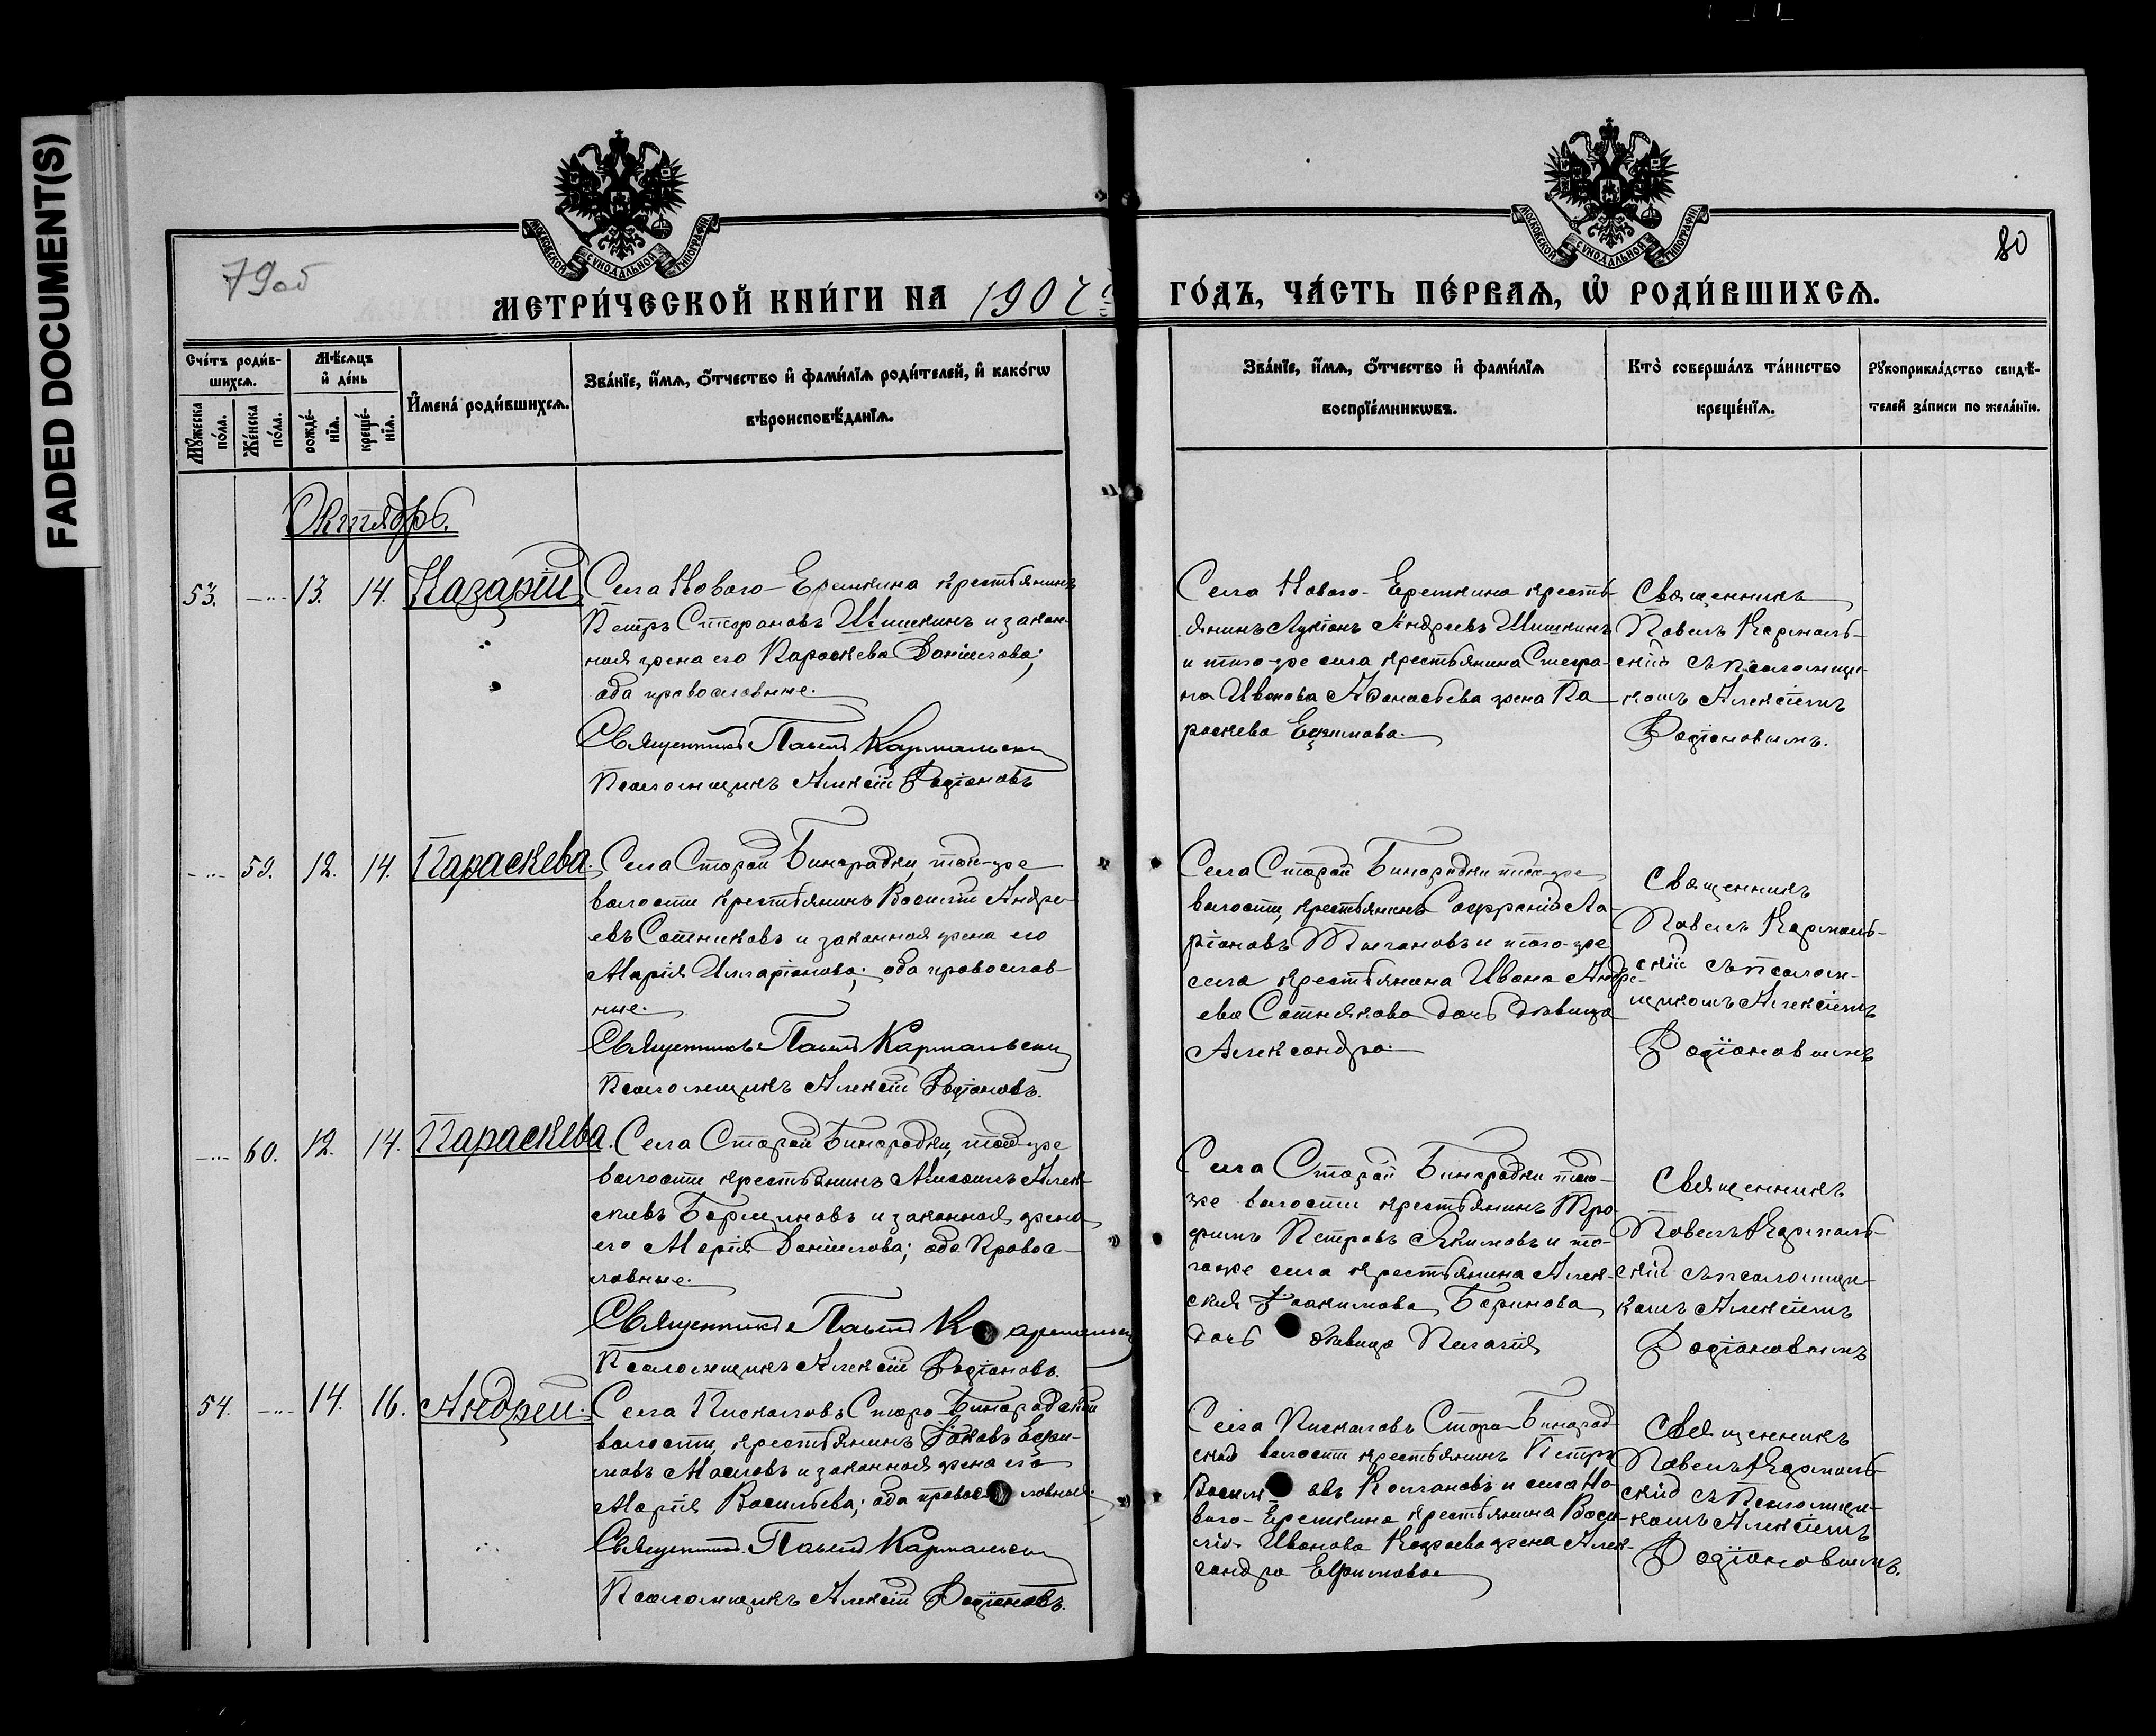 FADED DOCUMENT(S)
79об
80
МОСКОВСКОЙ СѴНОДАЛЬНОЙ ТИПОГРАФІИ
МОСКОВСКОЙ СѴНОДАЛЬНОЙ ТИПОГРАФІИ
МЕТРИ́ЧЕСКОЙ КНИ́ГИ НА 190
ГО́ДЪ, ЧА́СТЬ ПЕ́РВАѦ, Ѡ҆ РОДИ́ВШИХСѦ.
Сче́тъ роди́в-
шихсѧ.
Мꙋ́жеска по́ла.
Же́нска по́ла.
Мѣ́сѧцъ
и҆ де́нь
рожде́-нїѧ.
креще́-нїѧ.
И҆мена̀ роди́вшихсѧ.
Зва́нїе, и҆́мѧ, ѻ҆́тчество и҆ фами́лїѧ роди́телей, и҆ како́гѡ
вѣроисповѣ́данїѧ.
Зва́нїе, и҆́мѧ, ѻ҆́тчество и҆ фами́лїѧ
воспрїе́мникѡвъ.
Кто̀ соверша́лъ та́инство
креще́нїѧ.
Рꙋкоприкла́дство свидѣ́-
телей за́писи по жела́нїю.
Октябрь.
53. 13. 14. Назарій
Села Новаго-Еремкина крестьянинъ
Петръ Стефановъ Шишкинъ и закон-
ная жена его Параскева Даніилова;
оба православные.
Священникъ Павелъ Кармальскій
Псаломщикъ Алексій Родіоновъ
Села Новаго-Еремкина кресть-
янинъ Лукіанъ Андреевъ Шишкинъ
и того-же села крестьянина Стефа-
на Иванова Афанасьева жена Па-
раскева Ефимова.
Священникъ
Павелъ Кармаль-
скій съ псаломщи-
комъ Алексіемъ
Родіоновымъ.
59. 12. 14. Параскева.
Села Старой Бинарадки, той-же
волости крестьянинъ Василій Андре-
евъ Сотниковъ и законная жена его
Марія Иларіонова; оба православ-
ные.
Священникъ Павелъ Кармальскій
Псаломщикъ Алексій Родіоновъ.
Села Старой Бинарадки той-же
волости, крестьянинъ Софроній Ла-
ріоновъ и того-же
села крестьянина Ивана Андре-
ева Сотникова дочь дѣвица
Александра.
Священникъ
Павелъ Кармаль-
скій съ псалом-
щикомъ Алексіемъ
Родіоновымъ
60. 12. 14. Параскева.
Села Старой Бинарадки, той-же
волости крестьянинъ Михаилъ Алек-
сеевъ и законная жена
его Марія Даніилова; оба правос-
лавные.
Священникъ Павелъ Кармальскій
Псаломщикъ Алексій Родіоновъ.
Села Старой Бинарадки той-
же волости крестьянинъ Тро-
фимъ Петровъ Якимовъ и то-
гоже села крестьянина Алек-
сія Іоакимова Баринова
дочь дѣвица Пелагія
Священникъ
Павелъ Кармаль-
скій съ псаломщи-
комъ Алексіемъ
Родіоновымъ
54. 14. 16. Андрей.
Села Пискаловъ Старо-Бинарадской
волости, крестьянинъ Іаковъ Ефи-
мовъ Масловъ и законная жена его
Марія Васильева; оба православные.
Священникъ Павелъ Кармальскій
Псаломщикъ Алексій Родіоновъ.
Села Пискаловъ Старо-Бинарад-
ской волости крестьянинъ Петръ
Васильевъ Колгановъ и села Но-
ваго-Еремкина крестьянина Васи-
лія Иванова жена Алек-
сандра Ефимова
Священникъ
Павелъ Кармаль-
скій съ Псаломщи-
комъ Алексіемъ
Родіоновымъ.